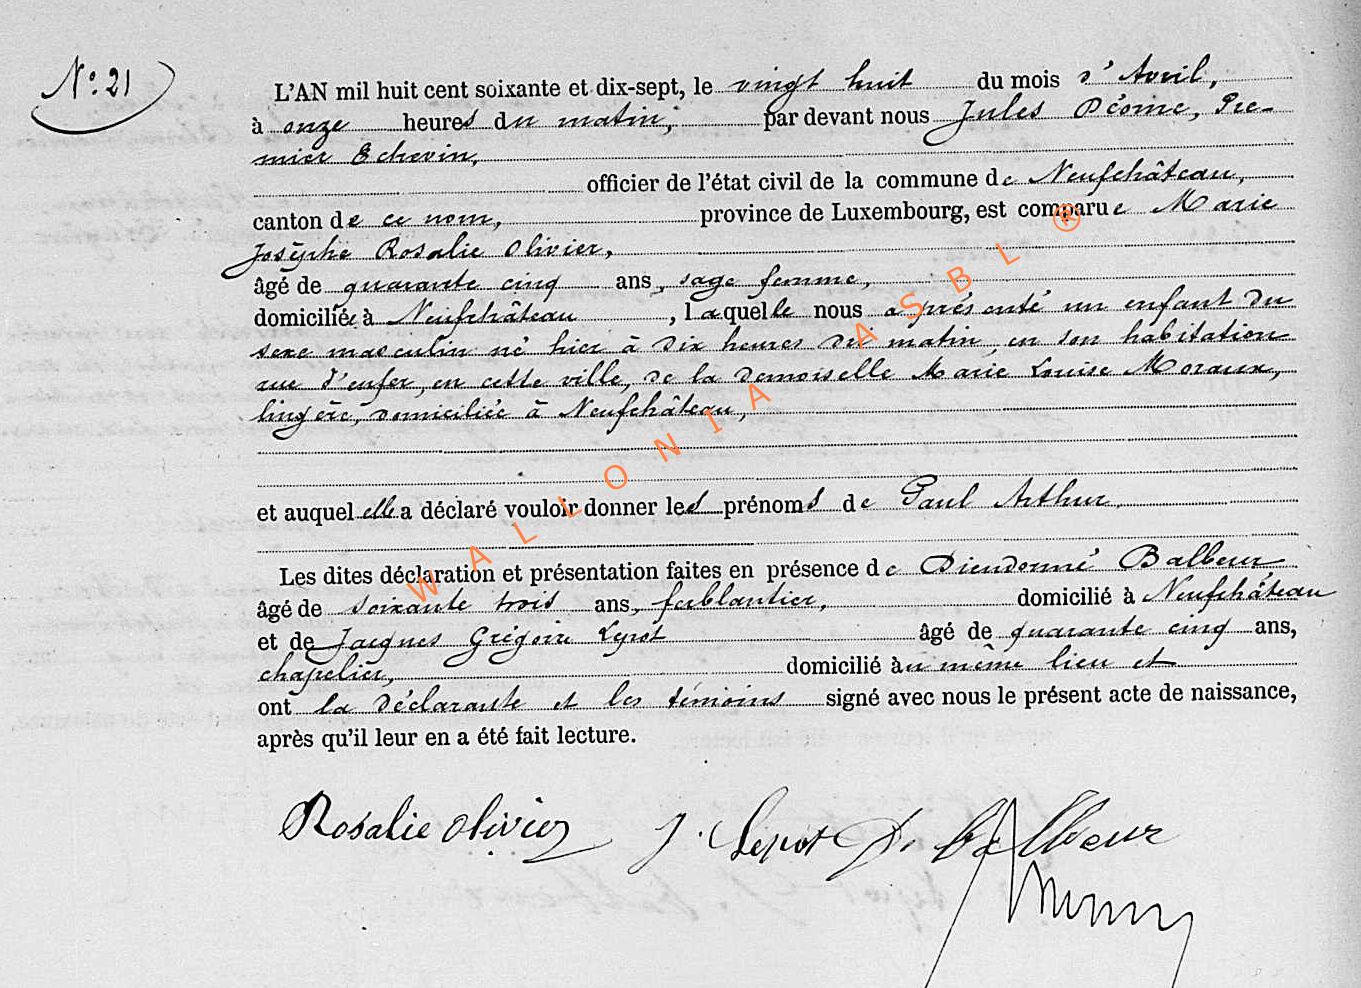 N° 21
L'AN mil huit cent soixante et dix-sept, le vingt huit du mois d'Avril,
à onze heures du matin, par devant nous Jules Déome, Pre-
mier Echevin,
officier de l'état civil de la commune de Neufchâteau,
canton de ce nom, province de Luxembourg, est comparue Marie
Josèphe Rosalie Olivier,
âgé de quarante cinq ans, sage femme,
domiciliée à Neufchâteau, laquelle nous a présenté un enfant du
sexe masculin né hier à dix heures du matin, en son habitation
rue d'enfer, en cette ville, de la demoiselle Marie Louise Moraux,
lingère, domiciliée à Neufchâteau,
et auquel elle a déclaré vouloir donner les prénoms de Paul Arthur
Les dites déclaration et présentation faites en présence de Dieudonné Balbeur
âgé de soixante trois ans, ferblantier, domicilié à Neufchâteau
et de Jacques Grégoire Lepot âgé de quarante cinq ans,
chapelier, domicilié au même lieu et
ont la déclarante et les témoins signé avec nous le présent acte de naissance,
après qu'il leur en a été fait lecture.
Rosalie Olivier J. Lepot D. Balbeur
WALLONIA ASBL ®